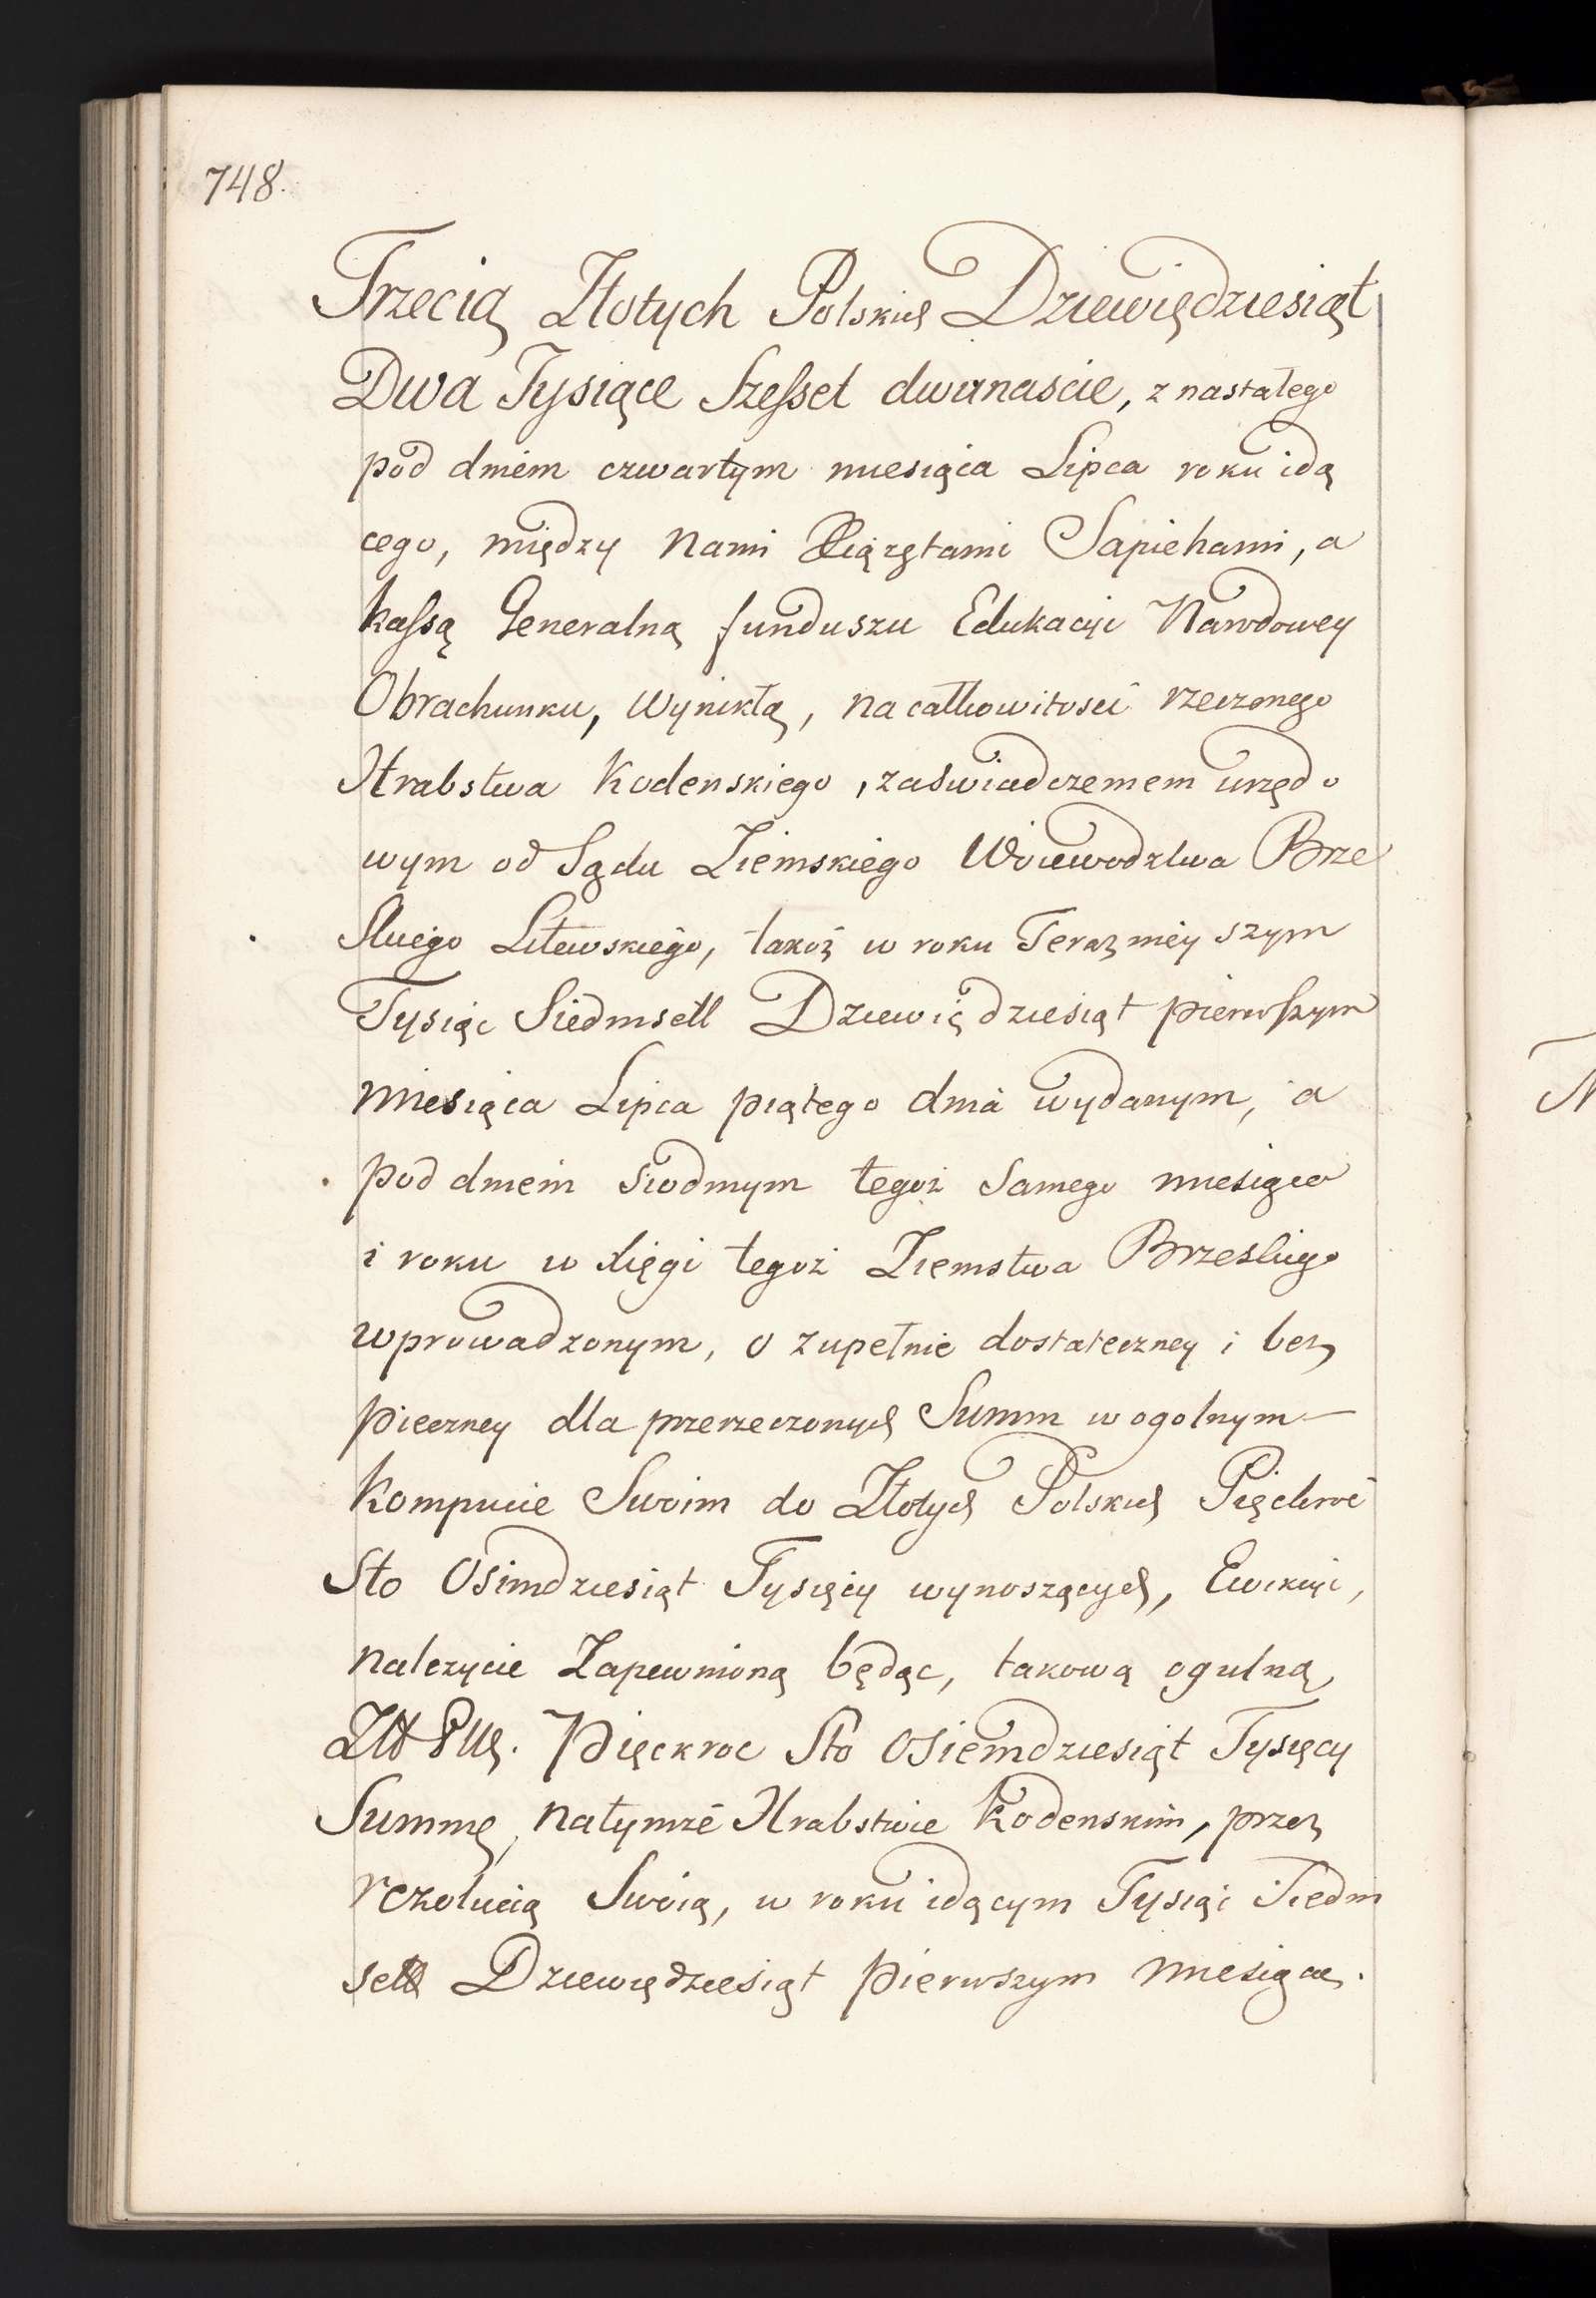 748.
Trzecią Złotych Polskich Dziewiędziesiąt
Dwa Tysiące Szesset dwanascie, z nastałego
pod dniem czwartym miesiąca Lipca roku idą
cego, między Nami Xiążętami Sapiehami, a
kassą Generalną funduszu Edukacyi Narodowey
Obrachunku, wynikłą, na całkowitosci rzeczonego
Hrabstwa Kodenskiego, zaswiadczeniem urzędo
wym od Sądu Ziemskiego Woiewodztwa Brze
skiego Litewskiego, takoż w roku Teraznieyszym
Tysiąc Siedmsett Dziewiędziesiąt pierwszym
miesiąca Lipca piątego dnia wydanym, a
pod dniem siodmym tegoż samego miesiąca
i roku w xięgi tegoż Ziemstwa Brzeskiego
wprowadzonym, o zupełnie dostateczney i bez
pieczney dla przerzeczonych Summ w ogolnym
Kompucie Swoim do Złotych Polskich Pięckroć
Sto Osimdziesiąt Tysięcy wynoszących, Ewikcyi,
nalezycie Zapewnioną będąc, takową ogulną
Złł Pllch. Pięckroc Sto Osiemdziesiąt Tysięcy
Summę, natymże Hrabstwie Kodenskim, przez
rezolucią Swoią, w roku idącym Tysiąc Siedm
sett Dziewiędziesiąt pierwszym miesiąca.
N